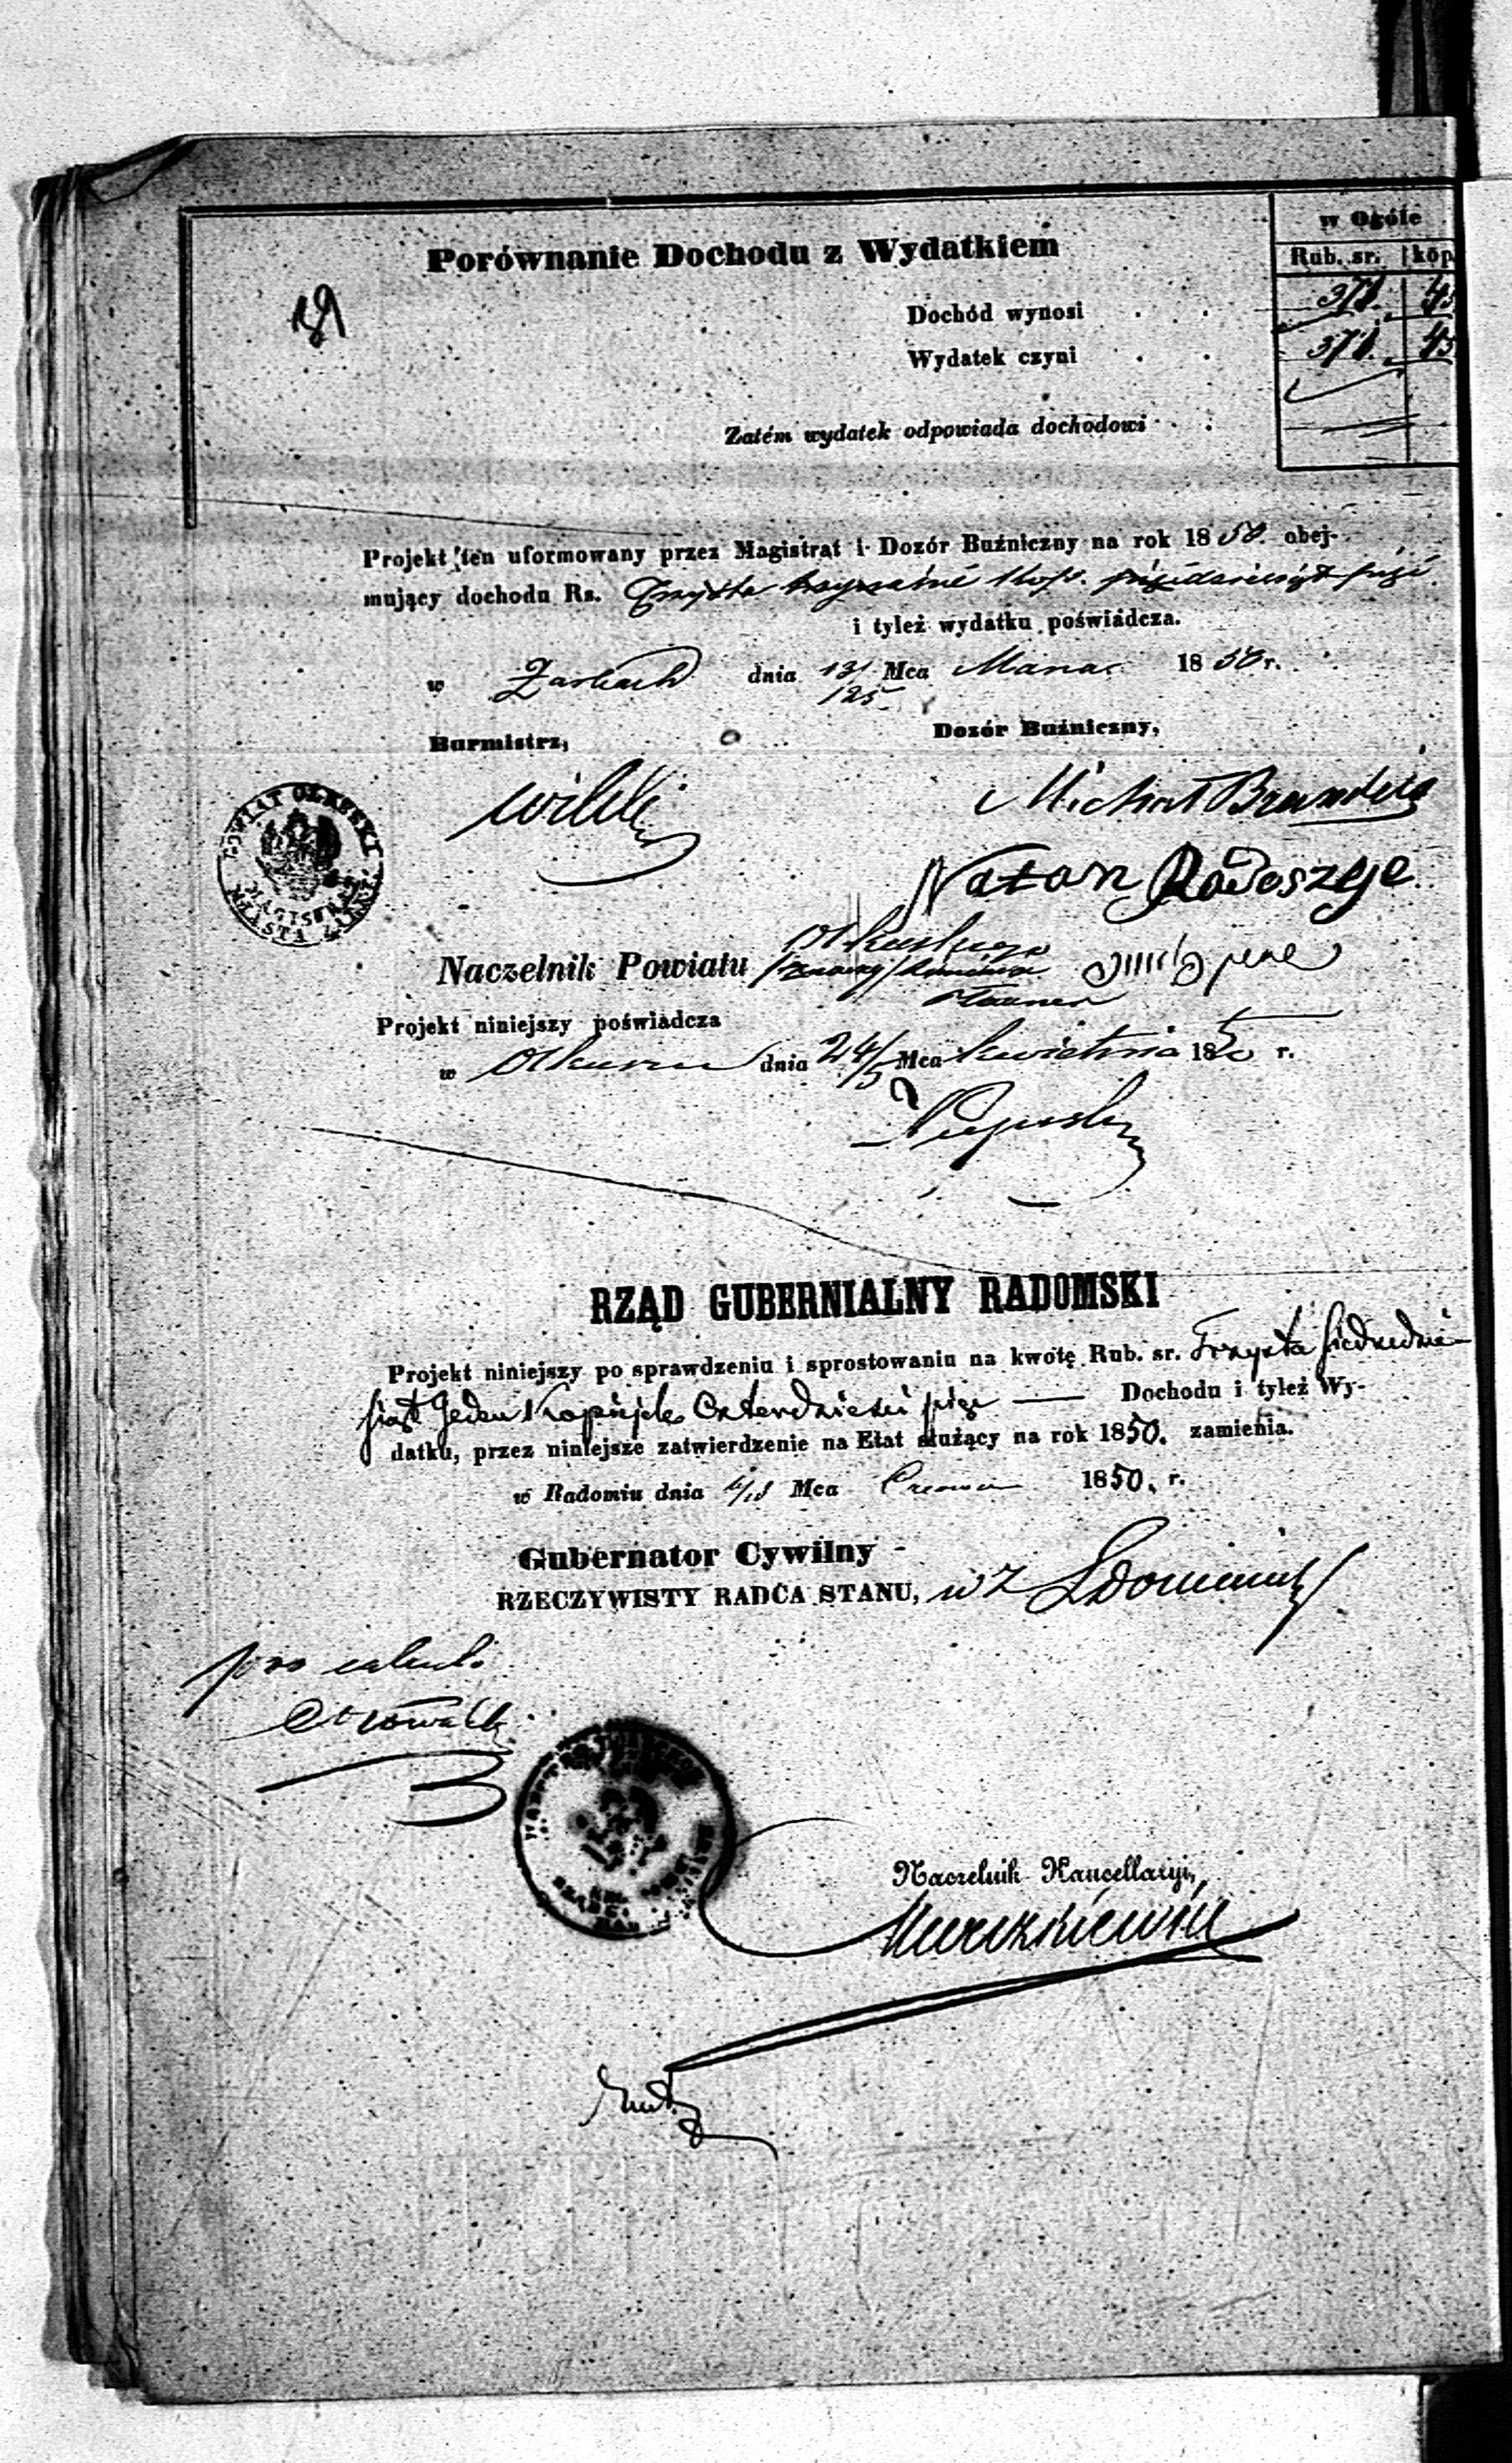 Porównanie Dochodu z Wydatkiem
w Ogóle
Rub. sr. kop
Dochód wynosi 371. 45
Wydatek czyni 371. 45
Zatém wydatek odpowiada dochodowi
Projekt ten uformowany przez Magistrat i Dozór Buźniczny na rok 1850. obej-
mujący dochodu Rs. Trzysta kop.
i tyleż wydatku poświadcza.
w Żarkach dnia 13/ Mca Marca 1850 r.
125
Burmistrz,
Dozór Buźniczny,
POWIAT OLKUSKI
MAGISTRAT
MIASTA ŻARKI
Wilski
Michał Brandeis
Natan Radoszyc
Naczelnik Powiatu Olkuskiego
Projekt niniejszy poświadcza
w Olkuszu dnia 24/5 Mca Kwietnia 1850 r.
RZĄD GUBERNIALNY RADOMSKI
Projekt niniejszy po sprawdzeniu i sprostowaniu na kwotę Rub. sr. Trzysta siedmdzie-
siąt Jeden Kopiejek Czterdzieści pięć — Dochodu i tyleż Wy-
datku, przez niniejsze zatwierdzenie na Etat służący na rok 1850. zamienia.
w Radomiu dnia 6/18 Mca Czerwca 1850. r.
Gubernator Cywilny
RZECZYWISTY RADCA STANU, w z
pro calculi
Naczelnik Kancellaryi,